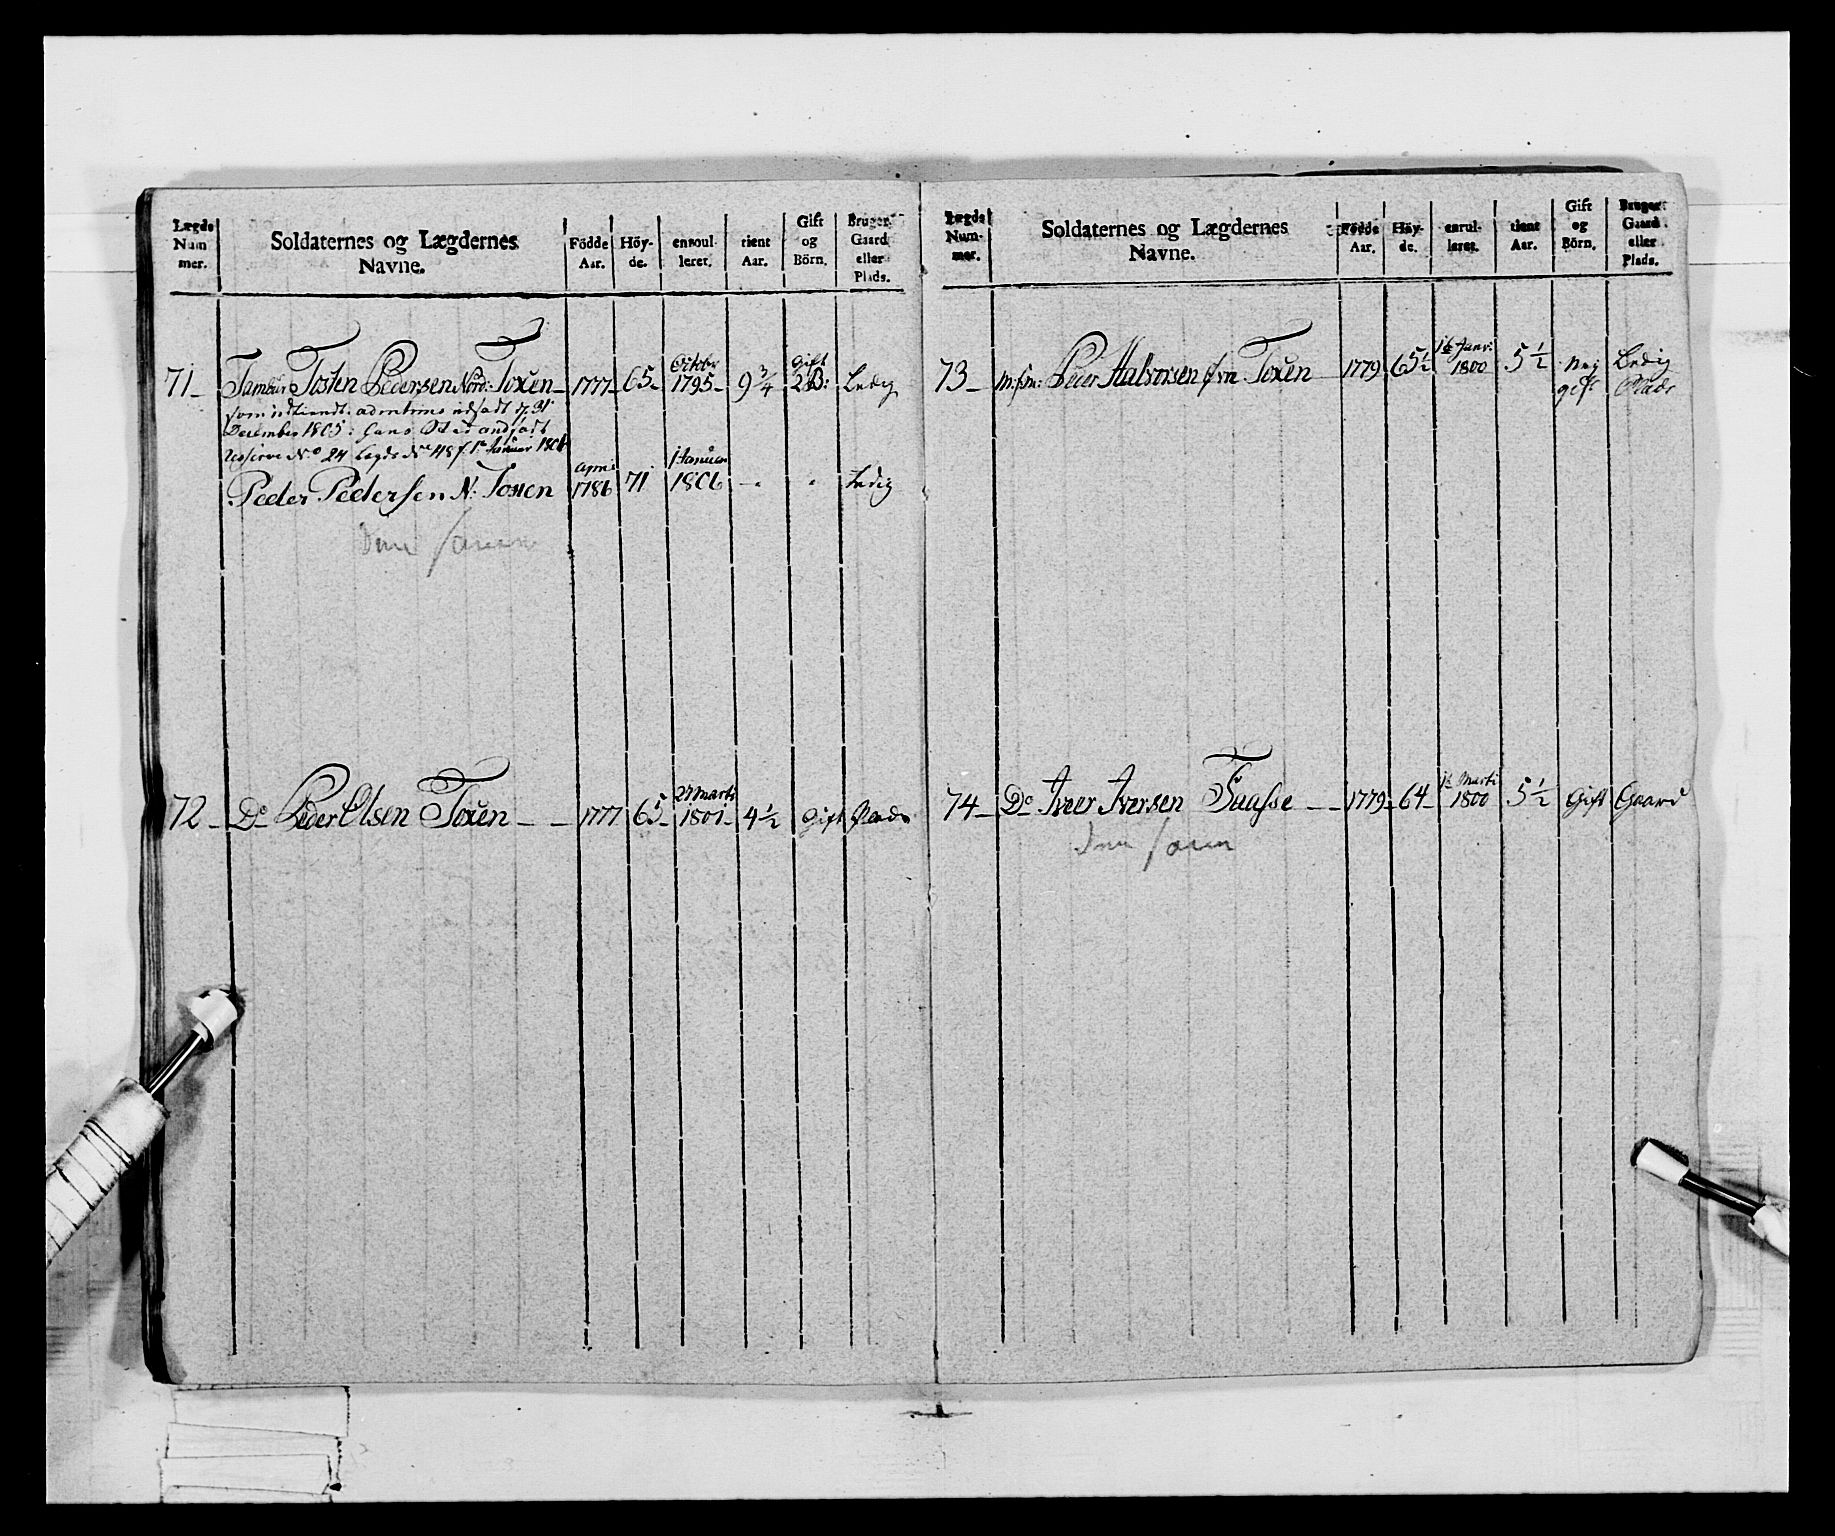 Lægds Num mer.
Soldaternes og Lægdernes Navne.
Födde Aar.
Höy- de.
enroul- leret.
tient Aar.
Gift og Börn.
Bruger Gaard eller Plads.
71 Tambur Tosten Pedersen Nord: Toxen 1777 65 Octobr 1795 9 3/4 Gift 2 B: Ledig
December 1805: hans Sted andsadt
Reserve No 24 Lægds No 48 f. 1te Januar 1806
Peder Pedersen N: Toxen April 1786 71 1 Januar 1806 Ledig
72 Do Peder Olsen Toxen 1777 65 27 Marti 1801 4 1/2 Gift Plads
Lægds Num- mer.
Soldaternes og Lægdernes Navne.
Födde Aar.
Höy- de.
enrul- leret.
tient Aar.
Gift og Börn.
Bruger Gaard eller Plads.
73 Peder Halvorsen Toxen 1779 65 1/2 16 Janr: 1800 5 1/2 Nej gift Ledig Plads
74 Do Iver Iversen Faasse 1779 64 Marti 1800 5 1/2 Gift Gaard